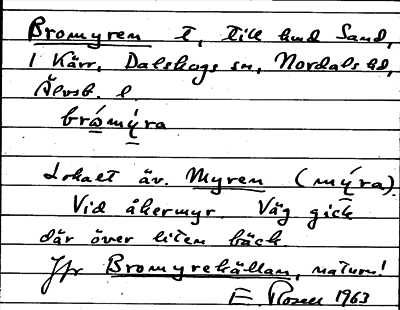 Bromyren t, till hmd Sand,
1 Kärr, Dalskogs sn, Nordals hd,
Älvsb. l.
brómýra
Lokalt äv. Myren (mýra).
Vid åkermyr. Väg gick
där över liten bäck
Jfr Bromyrekällan, naturn!
E Rosell 1963